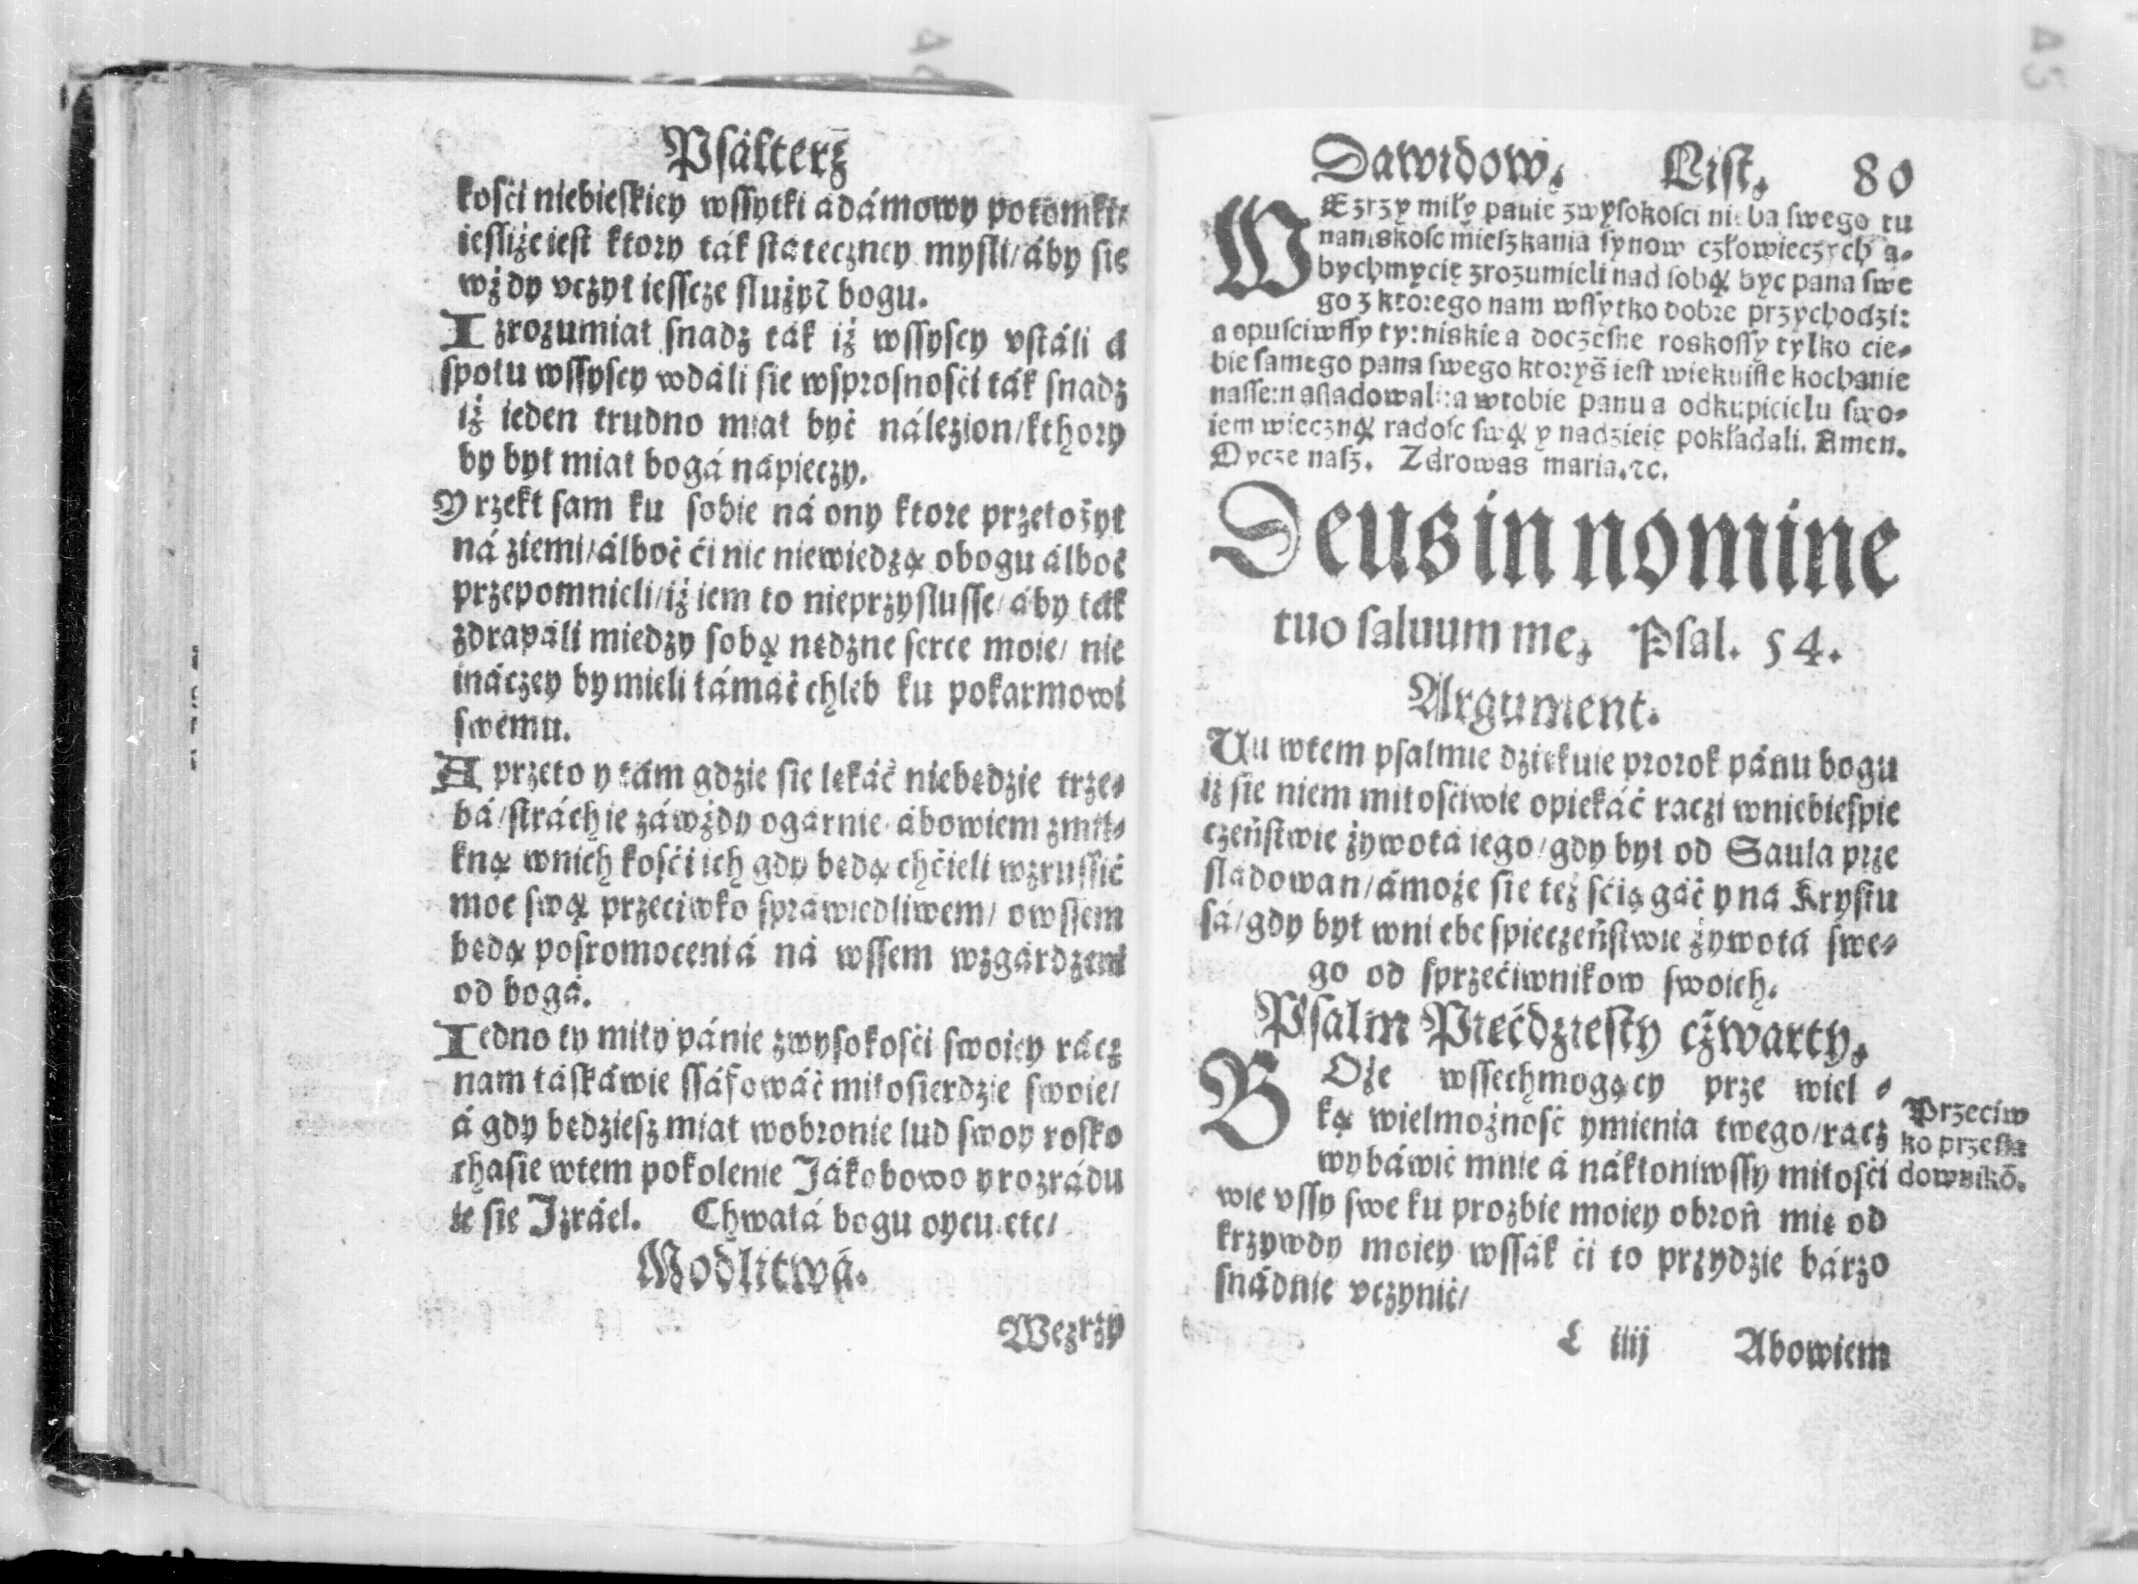 Psálterz
kosći niebieskiey wssytki adámowy potomki/
iesliże iest ktory ták státeczney mysli/ áby się
wżdy vczył iesscze służyć bogu.
I zrozumiał snadz ták iż wssyscy vstáli á
społu wssyscy wdáli sie wsprosnosći ták snadz
iż ieden trudno miał być nálezion/ kthory
by był miał bogá nápieczy.
Y rzekł sam ku sobie ná ony ktore przełożył
ná ziemi/ álboć ći nic niewiedzą obogu álboć
przepomnieli/ iż iem to nieprzyslusse/ áby ták
zdrapáli miedzy sobą nędzne serce moie/ nie
ináczey by mieli łámáć chleb ku pokarmowi
swemu.
A przeto y tám gdzie się lękáć niebędzie trze-
bá/ stráchie záwżdy ogárnie ábowiem zmil-
kną wnich kosći ich gdy będą chćieli wzrussić
moc swą przeciwko spráwiedliwem/ owssem
będą posromoceni á ná wssem wzgárdzeni
od bogá.
Iedno ty miły pánie zwysokosći swoiey rácz
nam łáskáwie ssáfowáć miłosierdzie swoie/
á gdy będziesz miał wobronie lud swoy rosko
chasie wtem pokolenie Jákobowo y rozrádu
ie się Izráel. Chwałá bogu oycu etc/
Modlitwá.
Wezrzy
Dawidow. List. 80
WEzrzy miły panie zwysokosci nieba swego tu
naniskosc mieszkania synow człowieczych a-
bychmycię zrozumieli nad sobą byc pana swe
go z ktorego nam wssytko dobre przychodzi:
a opusciwssy ty: niskie a doczesne roskossy tylko cie-
bie samego pana swego ktoryś iest wiekuiste kochanie
nasse: nasladowali: a wtobie panu a odkupicielu swo-
iem wieczną radosc swą y nadzieię pokładali. Amen.
Oycze nasz. Zdrowas maria. ꝛc.
Deus in nomine
tuo saluum me. Psal. 54.
Argument.
Uu wtem psalmie dziękuie prorok pánu bogu
iż sie niem miłosćiwie opiekáć raczi wniebiespie
czeństwie żywotá iego/ gdy był od Saula prze
sládowan/ ámoże sie też śćiągáć y ná Krystu
sá/ gdy był wni ebespieczeństwie żywotá swe-
go od sprzećiwnikow swoich.
Psalm Pięćdziesty czwarty.
BOże wssechmogący prze wiel-
ką wielmożność ymienia twego/ racz
wybáwić mnie á nákłoniwssy miłosći
wie vssy swe ku prozbie moiey obroń mię od
krzywdy moiey wssák ći to przydzie bárzo
snádnie vczynić/
Przeciw
ko przesla
downikō.
L iiij Abowiem